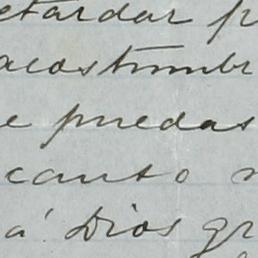 etardar p
acostumbr
e puedas
canto n
á Dios gr